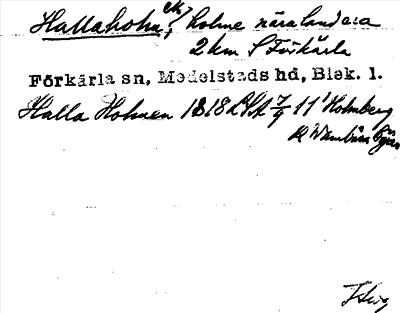 Hallaholm, ek? holme nära land ca
2 km S Förkärla
Förkärla sn, Medelstads hd, Blek. l.
Halla Holmen 1818 LSA 7/9 11' Holmberg